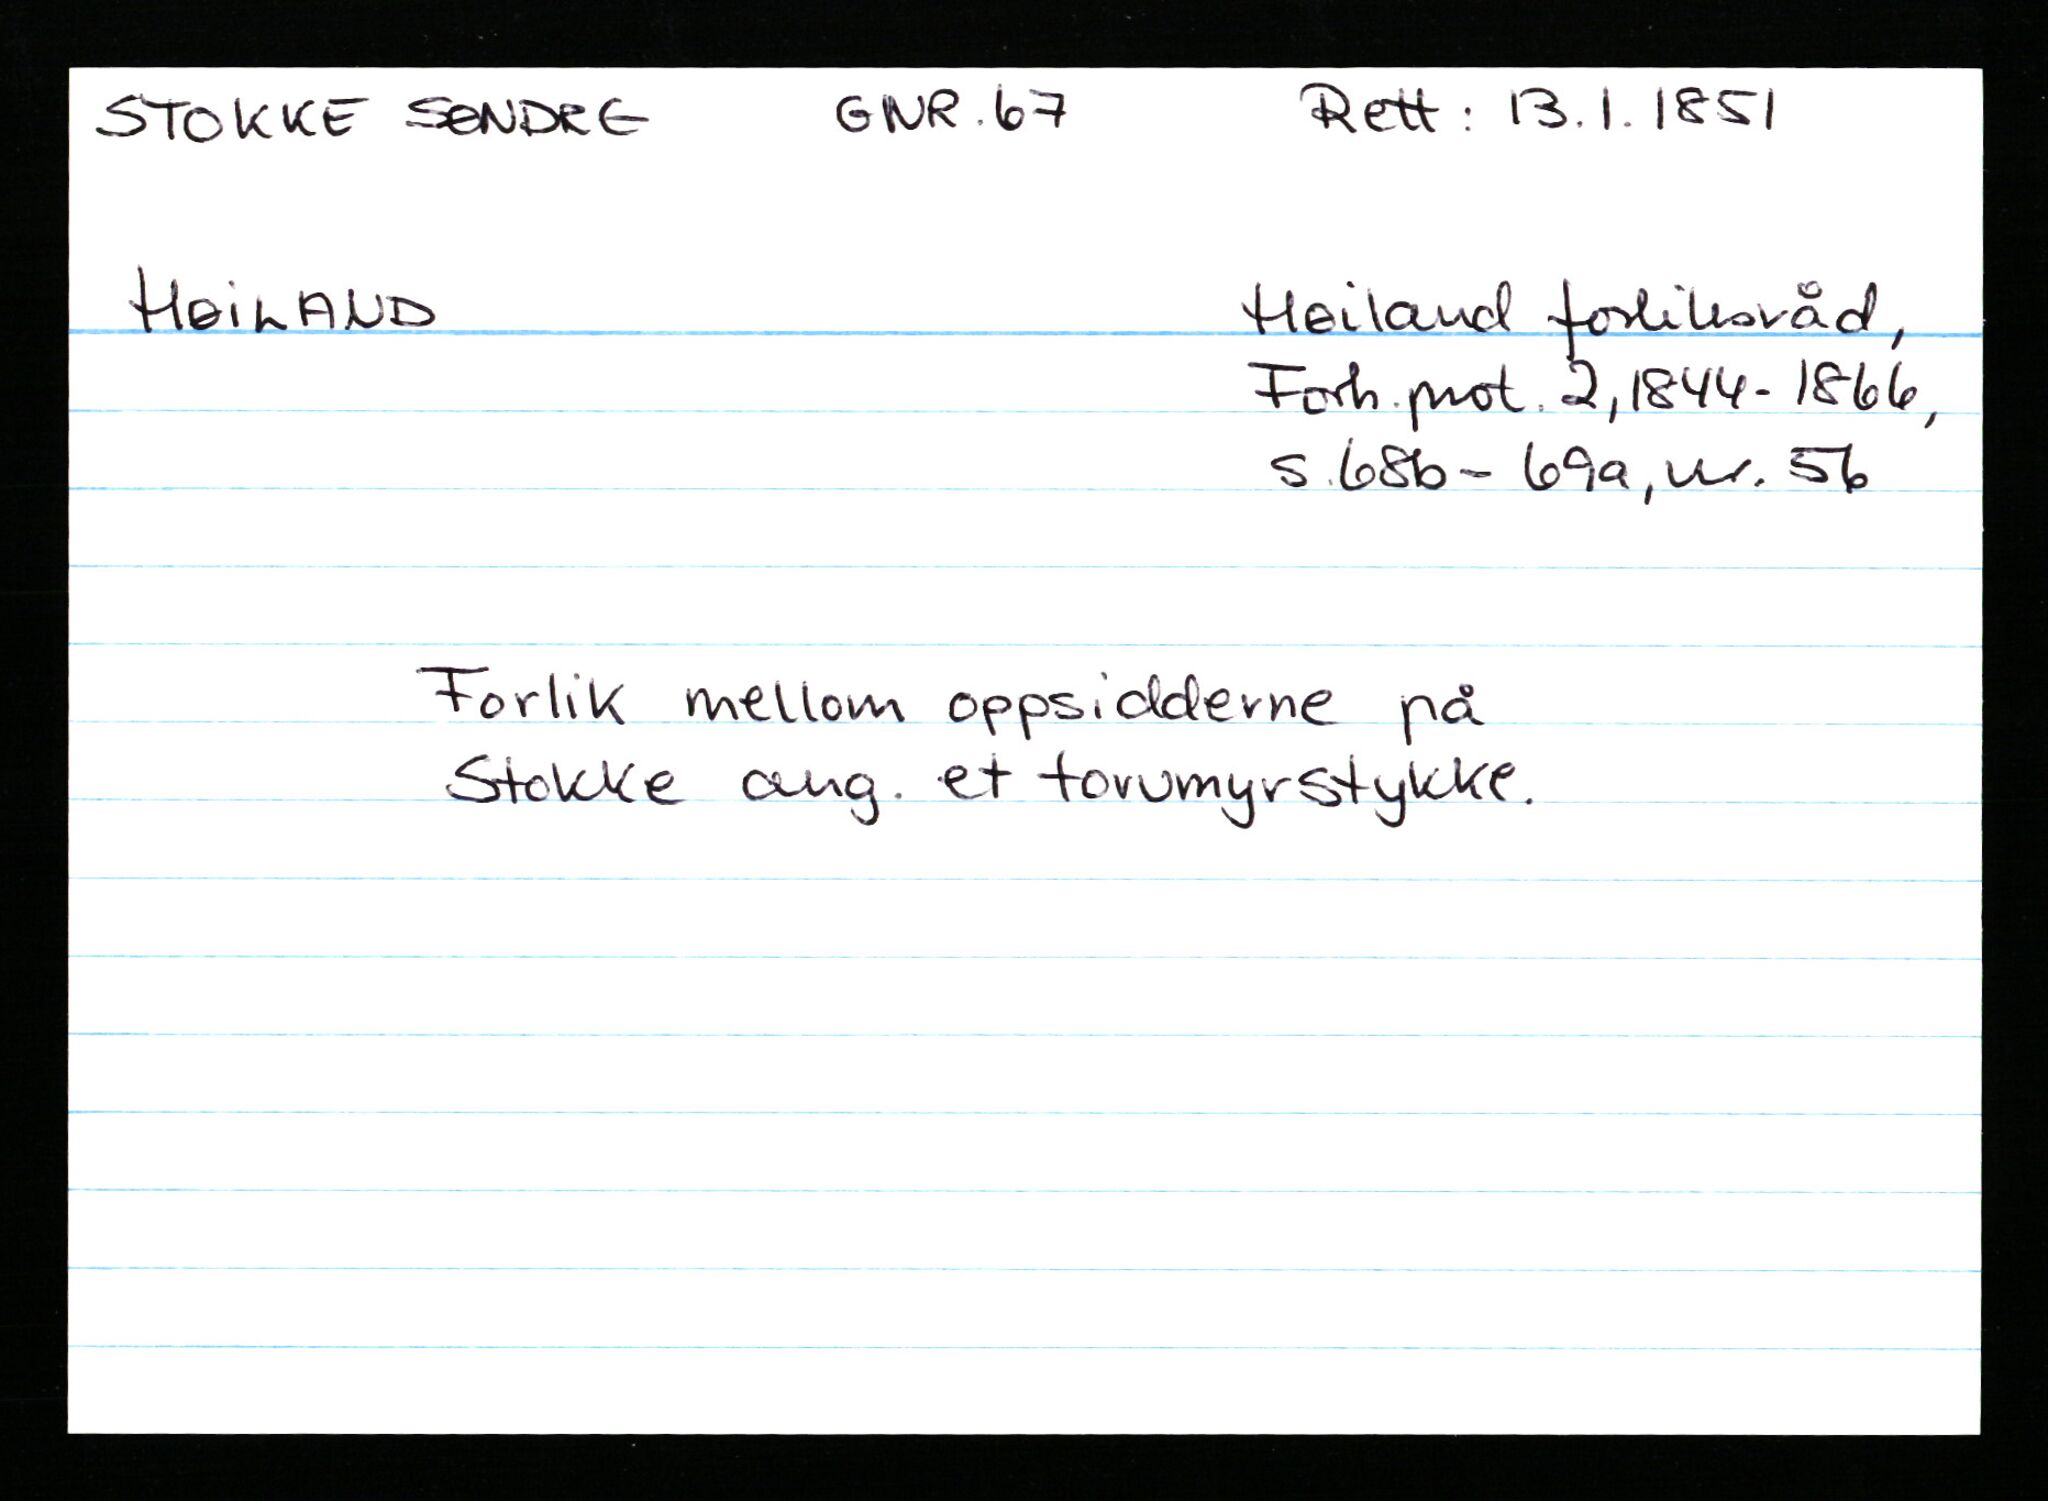 STOKKE SØNDRE GNR. 67 Rett: 13.1.1851
HØILAND Høiland forliksråd,
Forh. prot. 2, 1844-1866,
s. 68b - 69a, nr. 56
Forlik mellom oppsidderne på
Stokke ang. et torvmyrstykke.